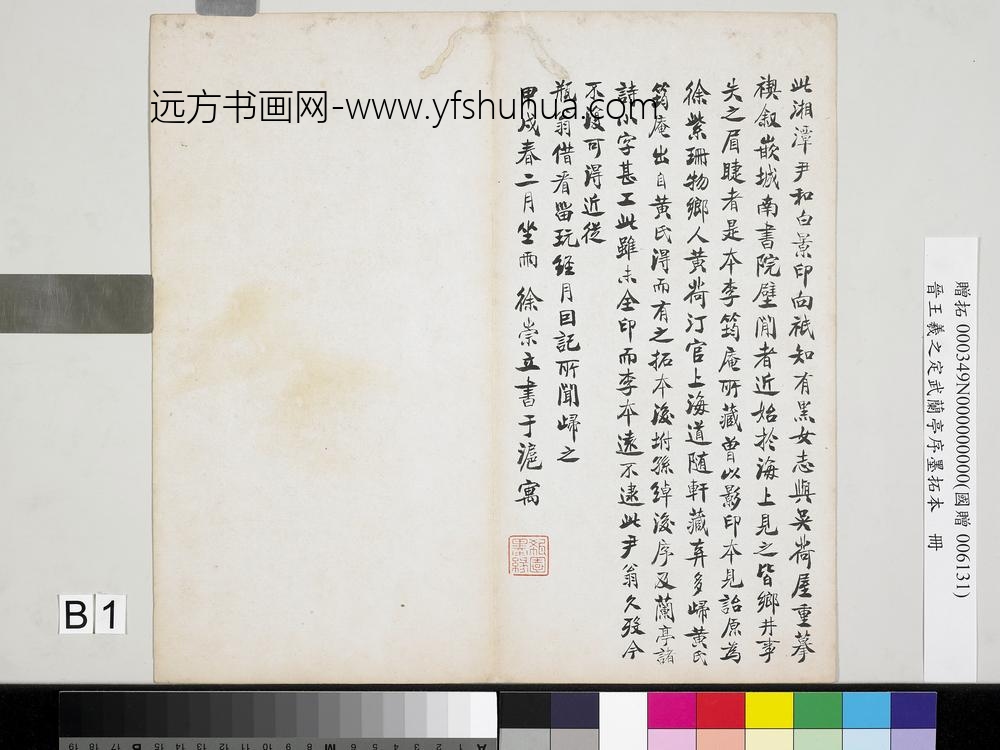 此湘潭尹和白景印向祇知有黑女志與吳荷屋重摹
禊叙嵌城南書院壁間者近始於海上見之皆鄉井事
失之眉睫者是本李筠庵所藏曾以影印本見詒原為
徐紫珊物鄉人黃荷汀官上海道随軒藏弆多歸黃氏
筠庵出自黃氏得而有之拓本後坿孫綽後序及蘭亭諸
詩小字甚工此雖未全印而李本遠不逮此尹翁久歿今
不復可得近從
瓶翁借看留玩經月因記所聞歸之
甲戌春二月坐雨 徐崇立書于滬寓
远方书画网-www.yfshuhua.com
贈拓 000349N000000000(國贈 006131)
晉王羲之定武蘭亭序墨拓本 冊
B 1